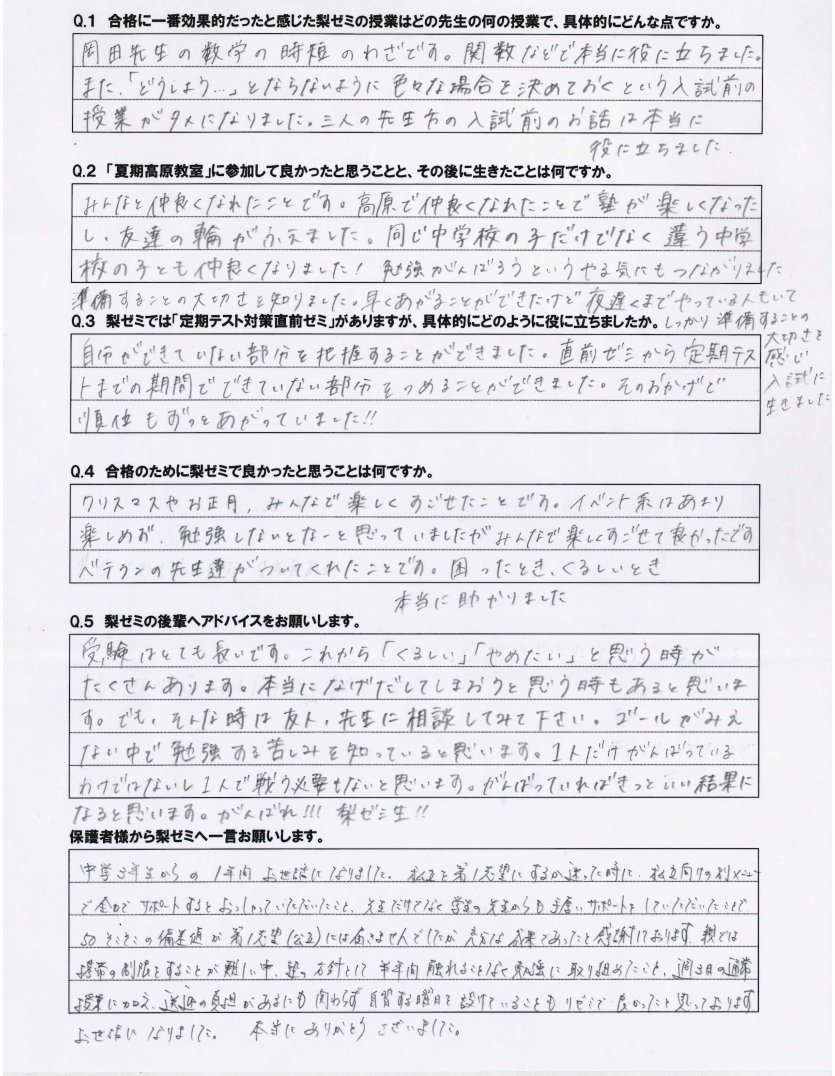 Q.1 合格に一番効果的だったと感じた梨ゼミの授業はどの先生の何の授業で、具体的にどんな点ですか。
岡田先生の数学の時短のわざです。関数などで本当に役に立ちました。
また、「どうしよう…」とならないように色々な場合を決めておくという入試前の
授業がタメになりました。三人の先生方の入試前のお話は本当に
役に立ちました.
Q.2 「夏期高原教室」に参加して良かったと思うことと、その後に生きたことは何ですか。
みんなと仲良くなれたことです。高原で仲良くなれたことで塾が楽しくなった
し、友達の輪がふえました。同じ中学校の子だけでなく違う中学
校の子とも仲良くなりました! 勉強がんばろうというやる気にもつながりました
準備することの大切さを知りました。早くあがることができたけど夜遅くまでやっている人もいて
しっかり準備することの
大切さを
感じ
入試に
生きました
Q.3 梨ゼミでは「定期テスト対策直前ゼミ」がありますが、具体的にどのように役に立ちましたか。
自分ができていない部分を把握することができました。直前ゼミから定期テス
トまでの期間でできていない部分をつめることができました。そのおかげで
順位もずっとあがっていました!!
Q.4 合格のために梨ゼミで良かったと思うことは何ですか。
クリスマスやお正月、みんなで楽しくすごせたことです。イベント系はあまり
楽しめず、勉強しないとなーと思っていましたがみんなで楽しくすごせて良かったです
ベテランの先生達がついてくれたことです。困ったとき、くるしいとき
本当に助かりました
Q.5 梨ゼミの後輩へアドバイスをお願いします。
受験はとても長いです。これから「くるしい」「やめたい」と思う時が
たくさんあります。本当になげだしてしまおうと思う時もあると思いま
す。でも、そんな時は友人、先生に相談してみて下さい。ゴールがみえ
ない中で勉強する苦しみを知っていると思います。1人だけがんばっている
わけではないし1人で戦う必要もないと思います。がんばっていればきっといい結果に
なると思います。がんばれ!!! 梨ゼミ生!!
保護者様から梨ゼミへ一言お願いします。
中学3年生からの1年間お世話になりました。私立を第1志望にするか迷った時に、私立向けの別メニュー
で全力でサポートするとおっしゃっていただいたこと、先生だけでなく学生の先生からも手厚いサポートをしていただいたことで
50そこそこの偏差値が第1志望(公立)には届きませんでしたが充分な成果であったと感謝しております。親では
携帯の制限をすることが難しい中、塾の方針として半年間触れることなく勉強に取り組めたこと、週3日の通常
授業に加え、送迎の負担があるにも関わらず自習する曜日を設けていることもりゼミで良かったと思っております
お世話になりました。 本当にありがとうございました。